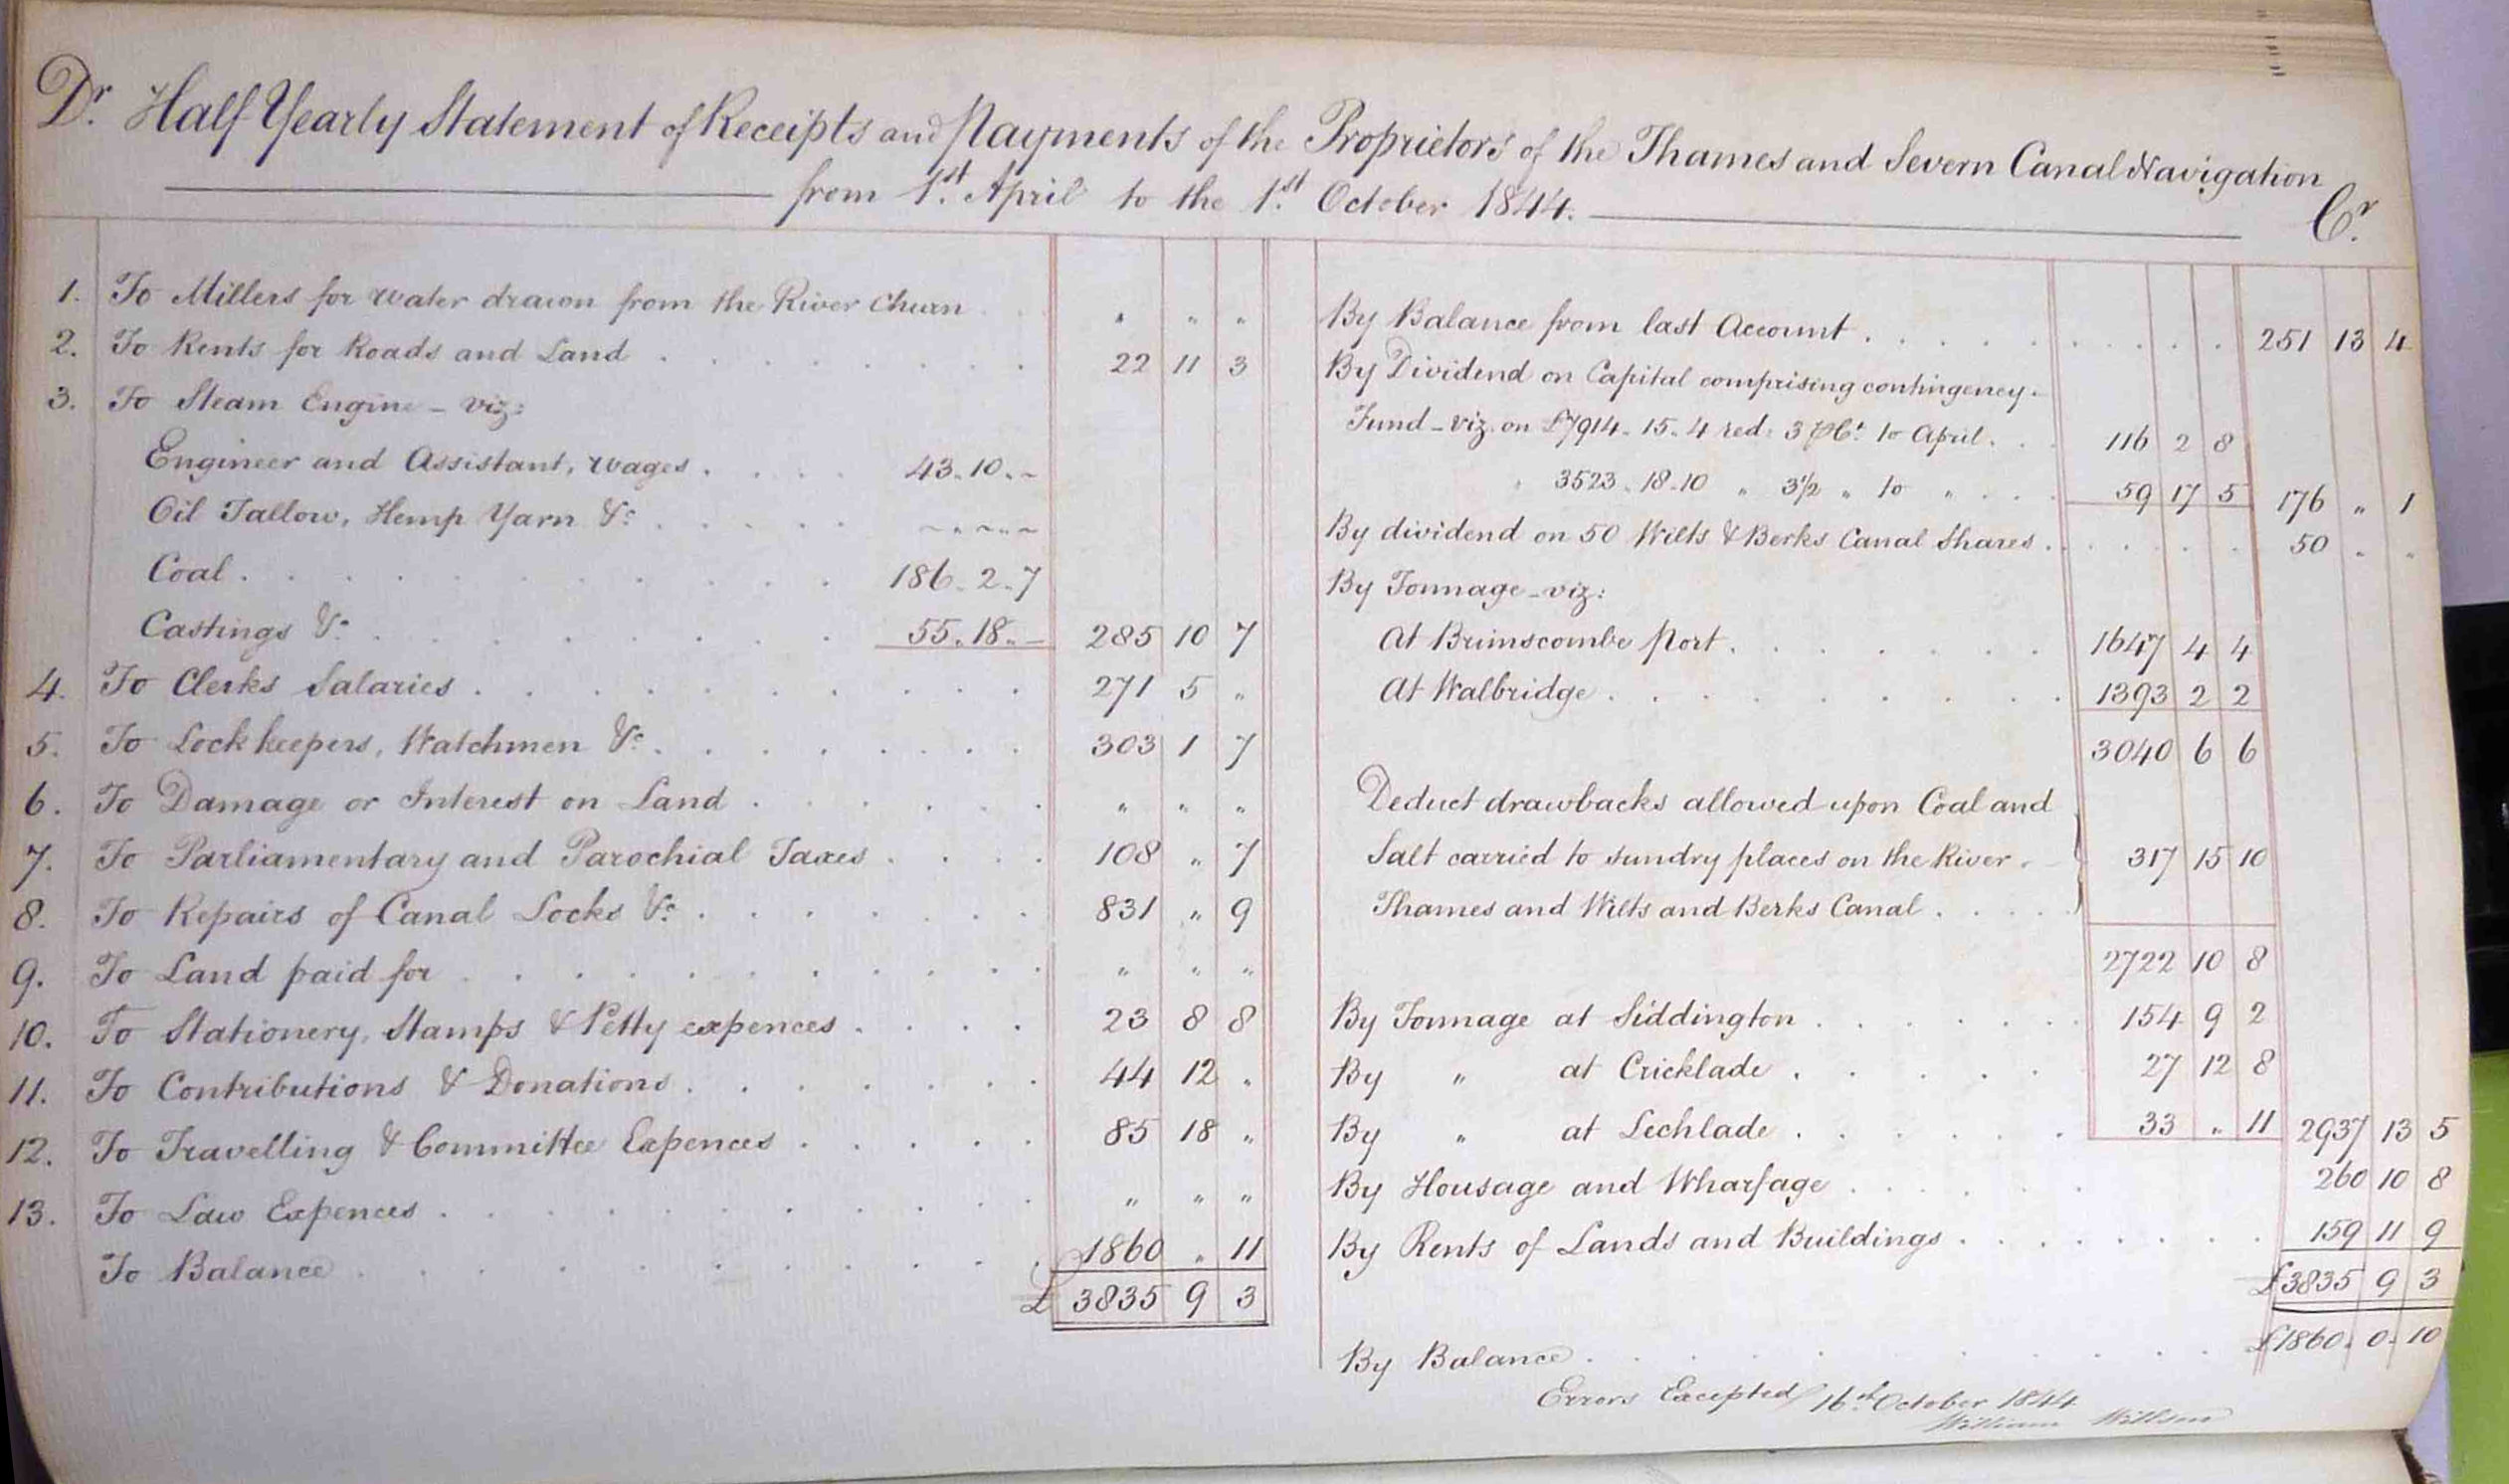 Dr. Half Yearly Statement of Receipts and Payments of the Proprietors of the Thames and Severn Canal Navigation
from 1st. April to the 1st. October 1844.
Cr.
1. To Millers for water drawn from the River Churn . . " " "
2. To Rents for Roads and Land . . . . . . . 22 11 3
3. To Steam Engine - viz:
Engineer and Assistant, wages . . . . 43.10.-
Oil Tallow, Hemp Yarn &c . . . . . -.-.-
Coal . . . . . . . . . . 186.2.7
Castings &c . . . . . . . . . 55.18.- 285 10 7
4. To Clerks Salaries . . . . . . . . . . 271 5 "
5. To Lock keepers, Watchmen &c . . . . . . . 303 1 7
6. To Damage or Interest on Land . . . . . . " " "
7. To Parliamentary and Parochial Taxes . . . . 108 " 7
8. To Repairs of Canal Locks &c . . . . . . . 831 " 9
9. To Land paid for . . . . . . . . . . " " "
10. To Stationery, Stamps & Petty expences . . . . 23 8 8
11. To Contributions & Donations . . . . . . . 44 12 "
12. To Travelling & Committee Expences . . . . . 85 18 "
13. To Law Expences . . . . . . . . . . " " "
To Balance . . . . . . . . . . 1860 " 11
£ 3835 9 3
By Balance from last Account . . . . . . . . . 251 13 4
By Dividend on Capital comprising contingency -
Fund - viz. on £7914. 15. 4 red: 3 P Ct. to April . . 116 2 8
" 3523. 18. 10 " 3½ " to " . . . 59 17 5 176 " 1
By dividend on 50 Wilts & Berks Canal Shares . . . . . . 50 " "
By Tonnage - viz:
At Brimscombe Port . . . . . . . 1647 4 4
At Walbridge . . . . . . . . 1393 2 2
3040 6 6
Deduct drawbacks allowed upon Coal and
Salt carried to sundry places on the River - 317 15 10
Thames and Wilts and Berks Canal . . . .
2722 10 8
By Tonnage at Siddington . . . . . . . 154 9 2
By " at Cricklade . . . . . 27 12 8
By " at Lechlade . . . . . . 33 " 11 2937 13 5
By Housage and Wharfage . . . . . . 260 10 8
By Rents of Lands and Buildings . . . . . . . . 159 11 9
£3835 9 3
By Balance . . . . . . . . . . £1860. 0. 10
Errors Excepted 16th October 1844
William Willson